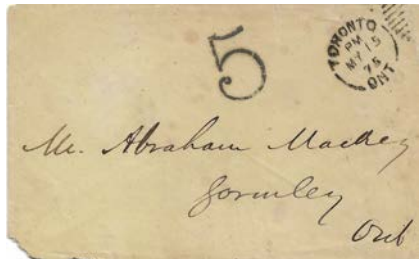 5
TORONTO
PM
MY 15
75
ONT
Mr. Abraham Mackey
Gormley
Ont